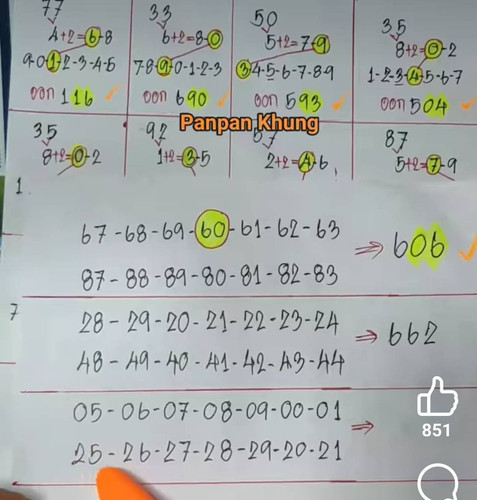 77 33 50 35
4+2=6-8 6+2=8-0 5+2=7-9 8+2=0-2
9-0-1-2-3-4-5 7-8-9-0-1-2-3 3-4-5-6-7-8-9 1-2-3-4-5-6-7
ออก 116 ออก 690 ออก 593 ออก 504
Panpan Khung
35 92 57 87
8+2=0-2 1+2=3-5 2+2=4-6 5+2=7-9
1.
67-68-69-60-61-62-63
87-88-89-80-81-82-83
⇒ 606
7
28-29-20-21-22-23-24
48-49-40-41-42-43-44
⇒ 662
05-06-07-08-09-00-01
25-26-27-28-29-20-21
⇒
851